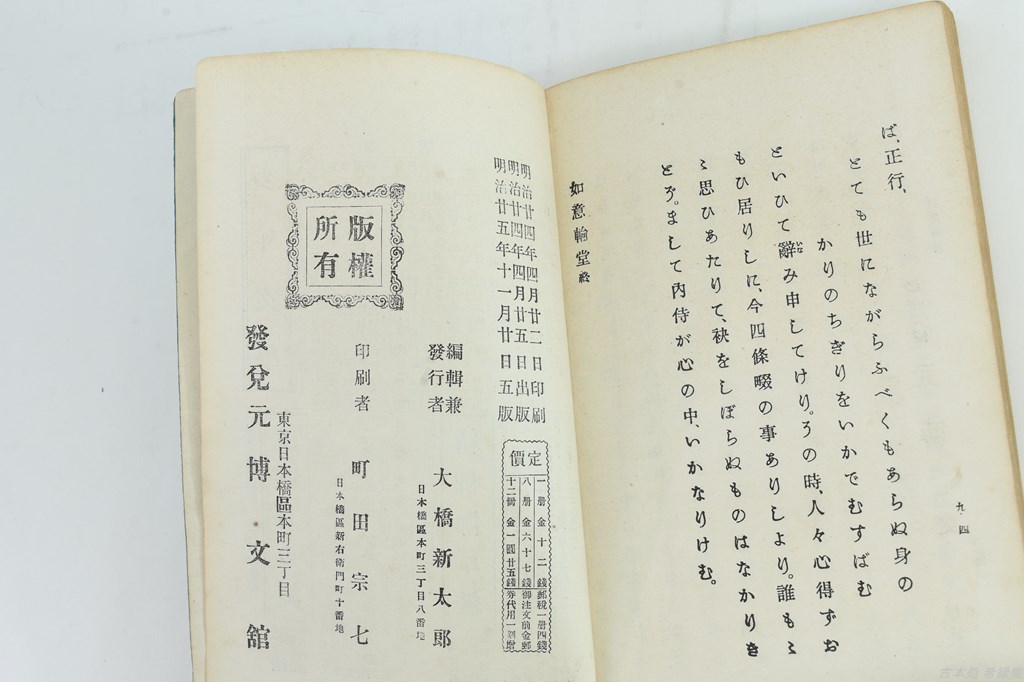 ば、正行、
とても世にながらふべくもあらぬ身の
かりのちぎりをいかでむすばむ
といひて辭み申してけり。その時、人々心得ずお
もひ居りしに、今四條畷の事ありしより。誰もミ
ミ思ひあたりて、袂をしぼらぬものはなかりき
とぞ。まして內侍が心の中、いかなりけむ。
如意輪堂終
九四
明治廿四年四月廿二日印刷
明治廿四年四月廿五日出版
明治廿五年十一月廿日五版
定價
一册金十二錢郵稅一册四錢
八册金六十七錢御注文前金郵
十二册金一圓廿五錢券代用一割增
編輯兼
發行者
大橋新太郎
日本橋區本町三丁目八番地
印刷者
町田宗七
日本橋區新右衞門町十番地
版權
所有
東京日本橋區本町三丁目
發兌元博文館